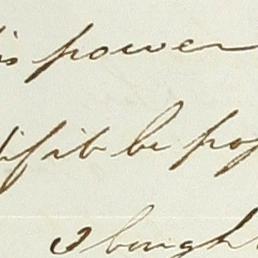 is power
if it be pos
I bough